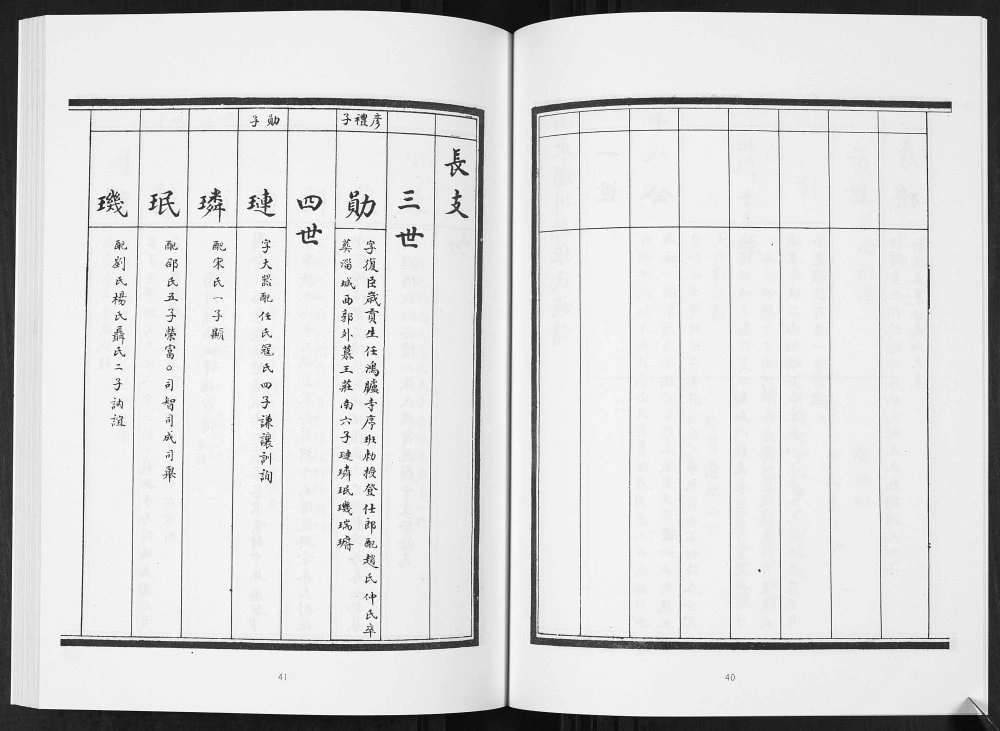 長支
三世
彥禮子
勛
字復臣歲貢生任鴻臚寺序班勅授登仕郎配趙氏仲氏卒
葬淄城西郭外慕王莊南六子璉璘珉璣瑞瓊
四世
勛子
璉
字大器配任氏寇氏四子謙讓訓詢
璘
配宋氏一子顯
珉
配邵氏五子榮富○司智司成司舉
璣
配劉氏楊氏聶氏二子訥誼
41
40